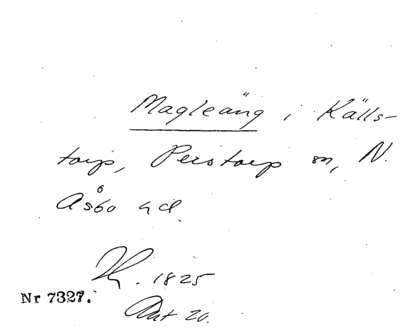 Magleäng i Källs-
torp, Perstorp sn, N.
Åsbo hd.
1825
Nr 7327.
Akt 20.